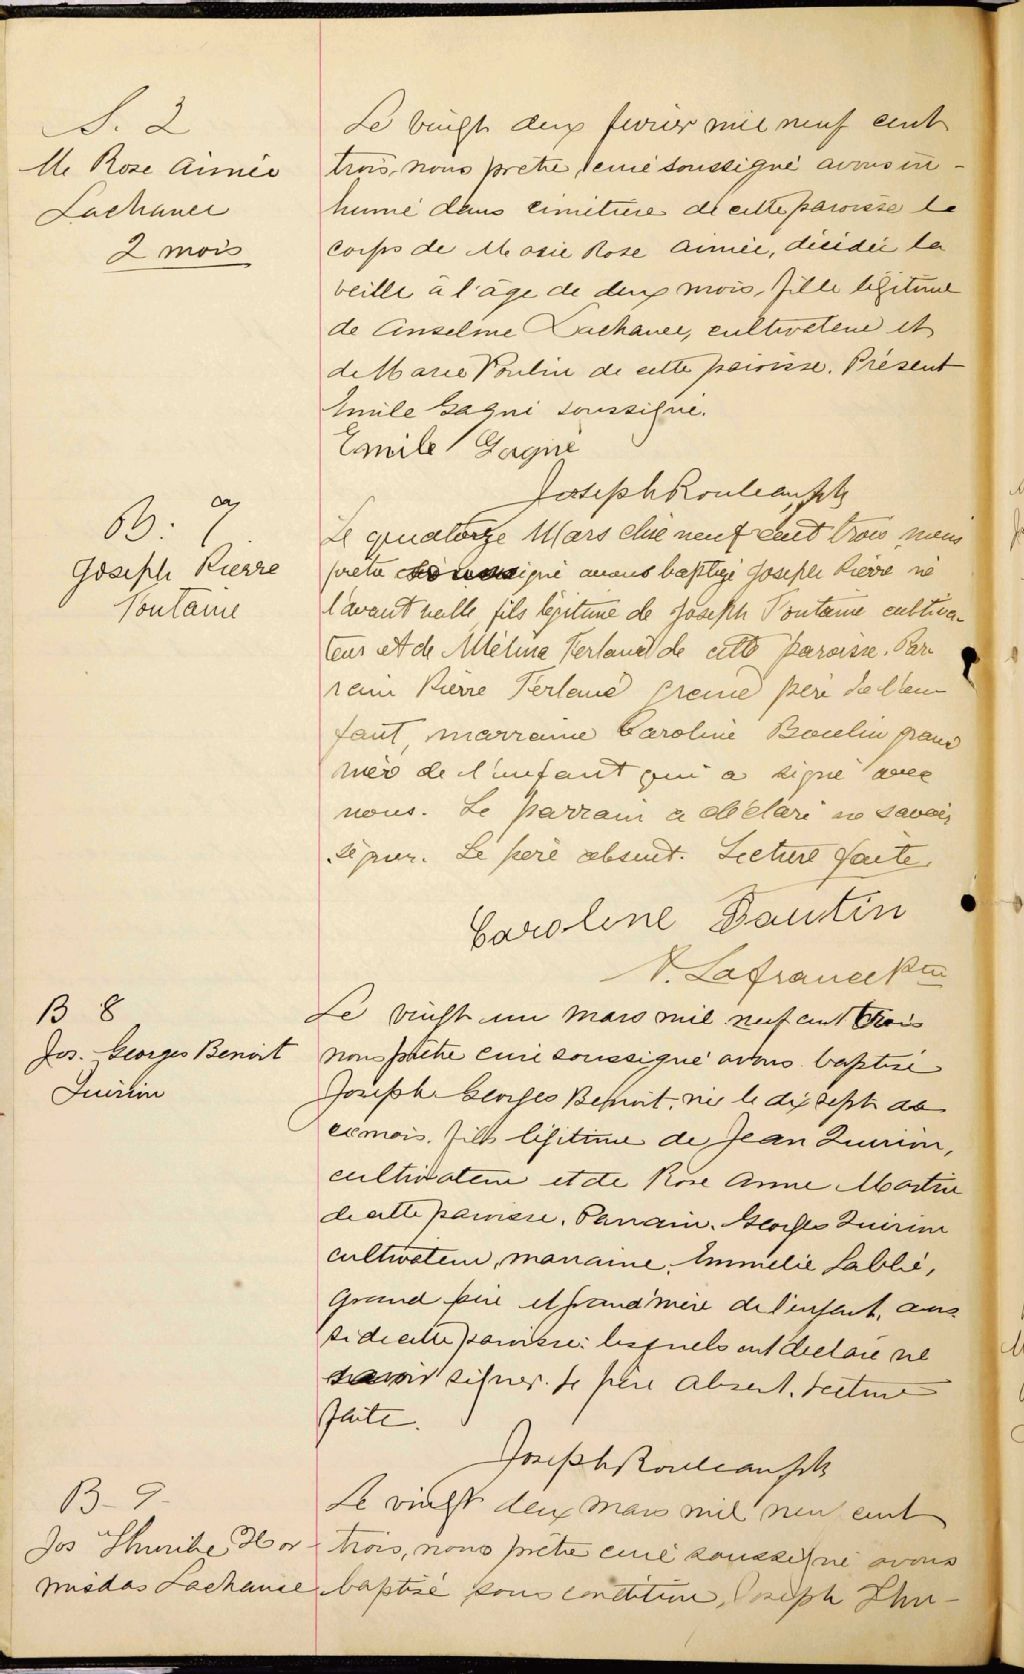 S. 2
M. Rose Aimée
Lachance
2 mois
Le vingt deux fevrier mil neuf cent
trois, nous prêtre, curé soussigné avons in-
humé dans cimitière de cette paroisse le
corps de Marie Rose Aimée, décidée la
veille à l'âge de deux mois, fille légitime
de Anselme Lachance, cultivateur et
de Marie Poulin de cette paroisse. Présent
Emile Gagné soussigné.
Emile Gagné
Joseph Rouleau, ptr
B. 7
Joseph Pierre
Fontaine
Le quatorze Mars mil neuf cent trois, nous
pretre soussigné avons baptizé Joseph Pierre né
l'avant veille, fils légitime de Joseph Fontaine cultiva-
teur et de Mélina Ferland de cette paroisse. Par-
rain Pierre Ferland grand père de l'en-
fant, marraine Caroline Boulin grand
mère de l'enfant qui a signé avec
nous. Le parrain a déclaré ne savoir
signer. Le père absent. Lecture faite.
Caroline
Lafrance Ptre
B 8
Jos. Georges Benoit
Quirion
Le vingt un mars mil neuf cent trois
nous prêtre curé soussigné avons baptisé
Joseph Georges Benoit, né le dix sept de
ce mois, fils légitime de Jean Quirion,
cultivateur et de Rose Anne Martin
de cette paroisse. Parrain, Georges Quirion
cultivateur, marraine, Emmelie Labbé,
grand père et grand'mère de l'enfant, aus-
si de cette paroisse: lesquels ont declaré ne
savoir signer. Le père absent. Lecture
faite.
Joseph Rouleau, ptr
B- 9-
Jos Thuribe Hor-
misdas Lachance
Le vingt deux mars mil neuf cent
trois, nous prêtre curé soussigné avons
baptisé sous condition, Joseph Thu-